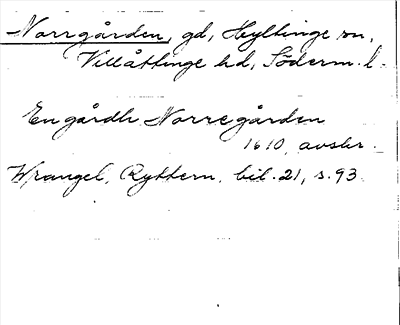 Norrgården, gd, Hyltinge sn,
Villåttinge hd, Söderm. l.
En gårdh Norregården
1610, avskr.
Wrangel, Ryttern, bil. 21, s. 93.